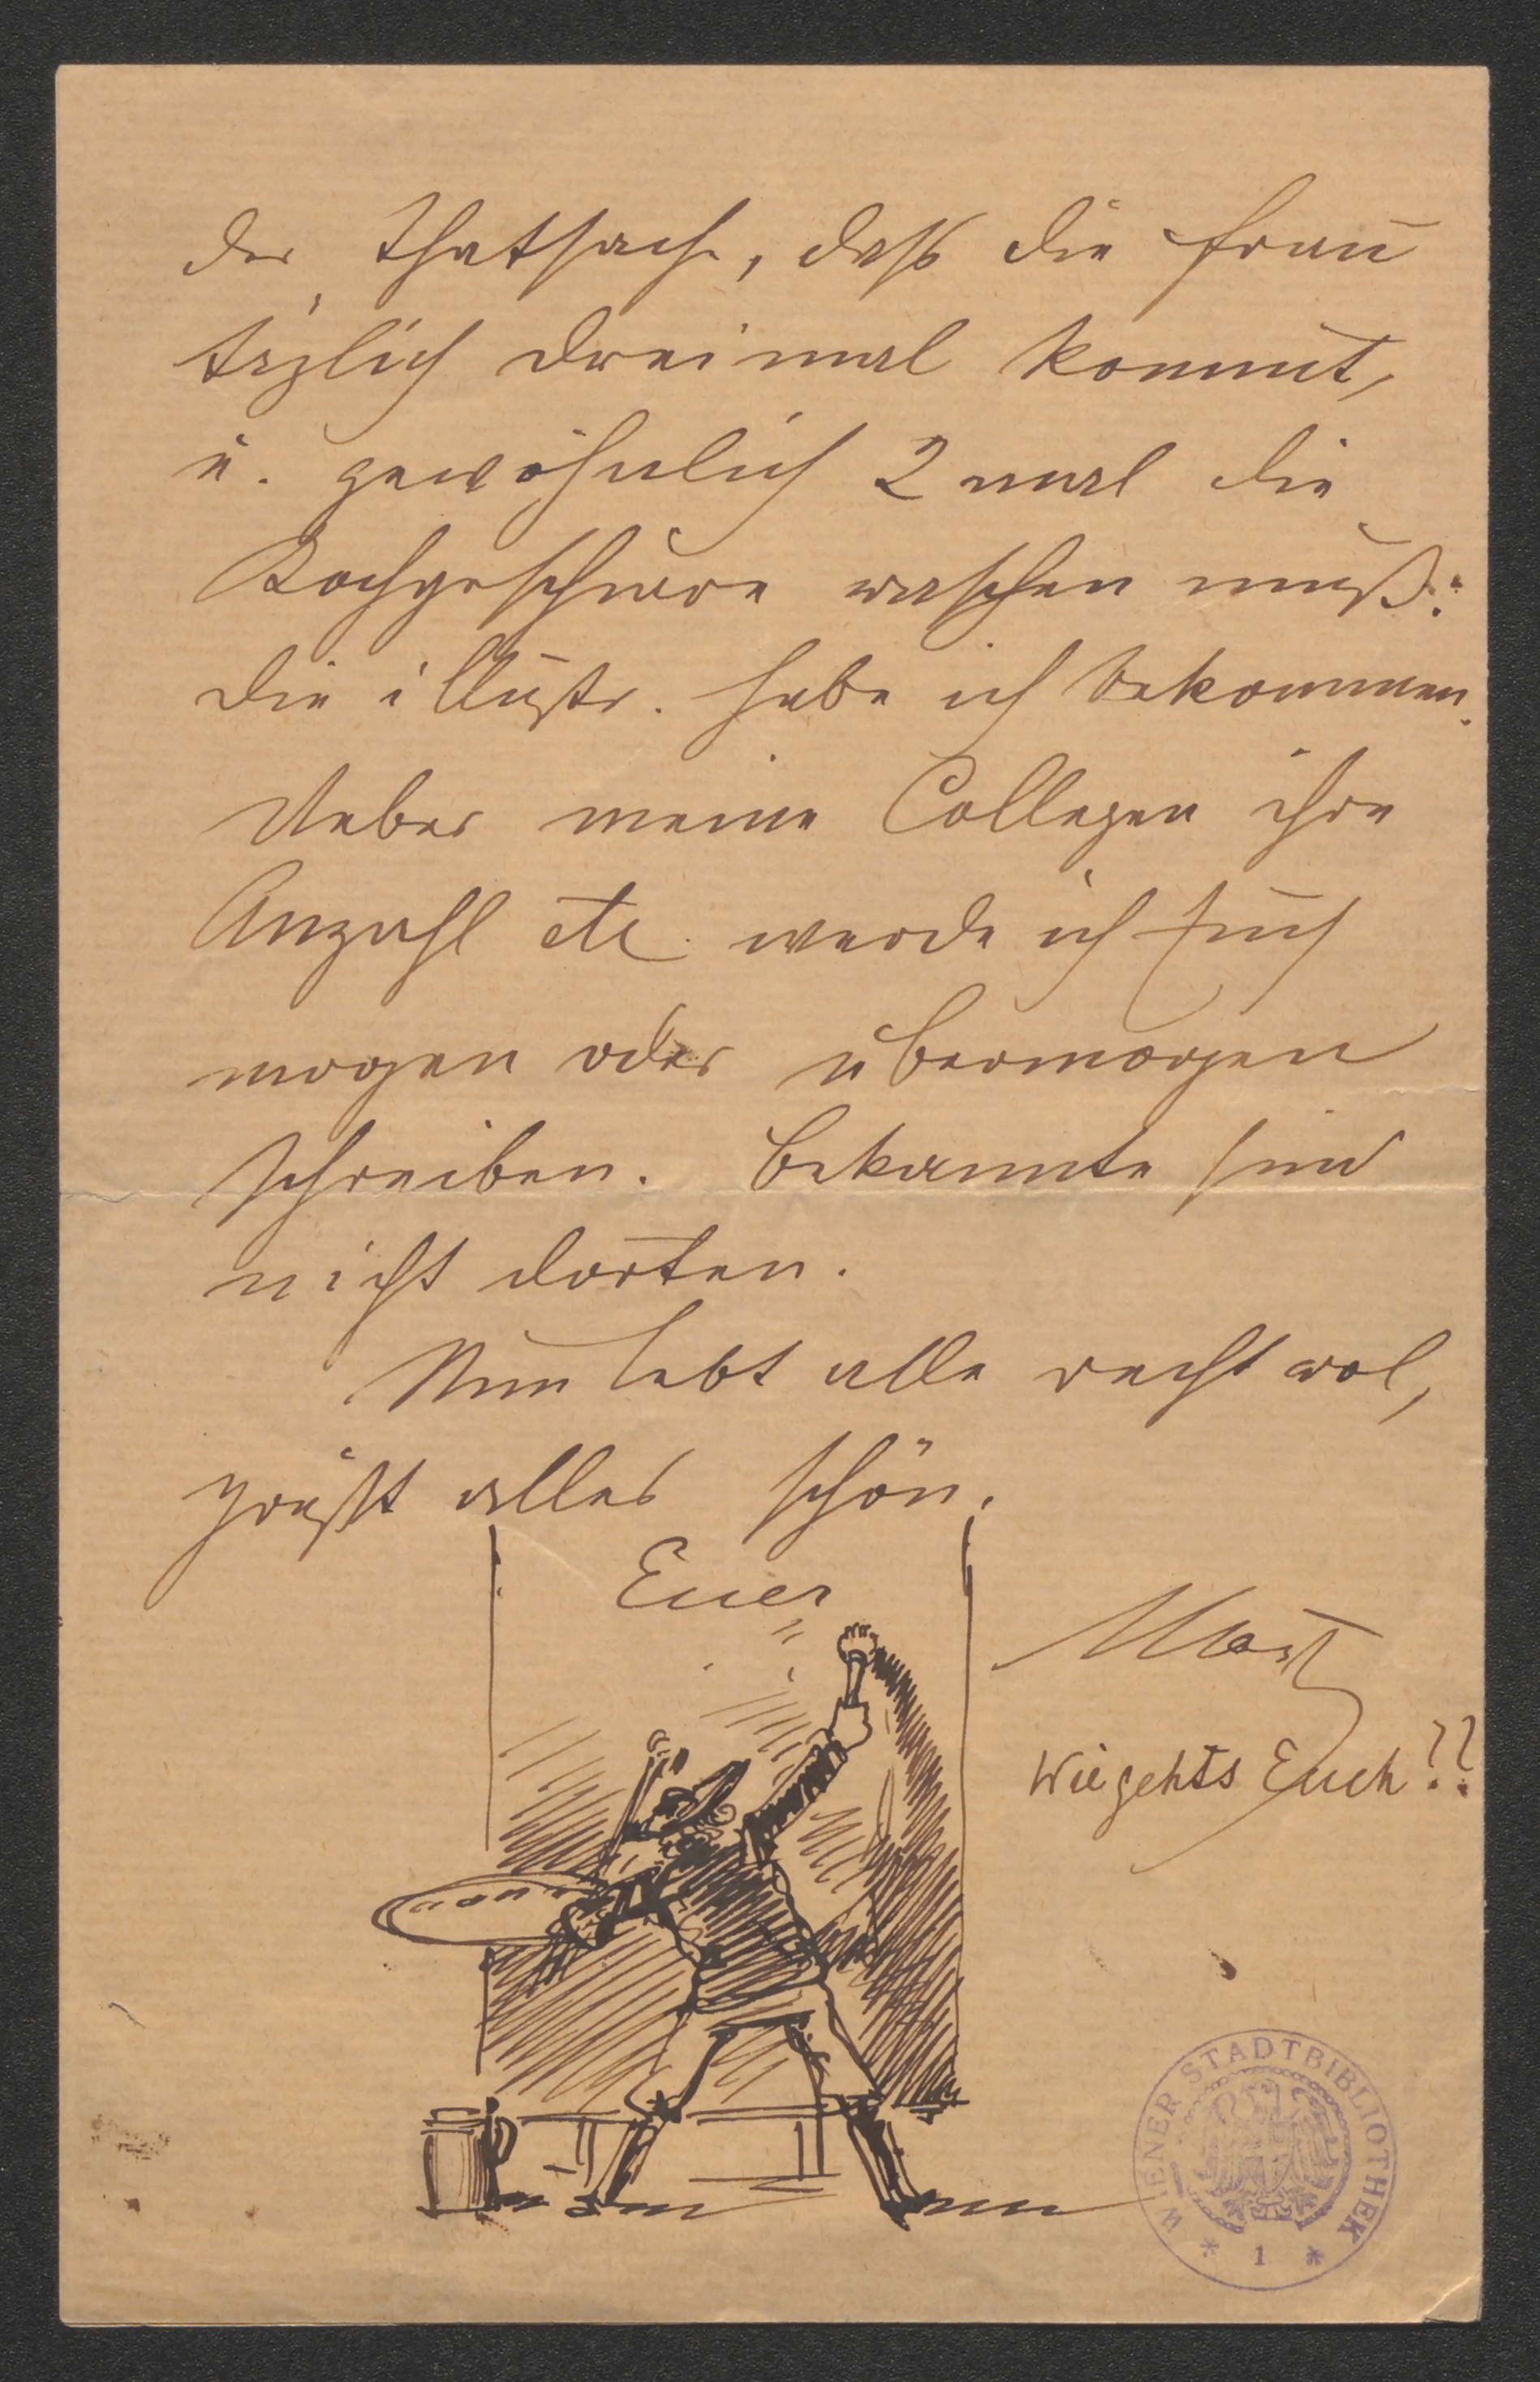 der Thatsache, dass die Frau
täglich dreimal kommt,
u. gewöhnlich 2 mal die
Kochgeschirre waschen muß.
Die illustr. habe ich bekommen.
Ueber meine Collegen ihre
Anzahl etc. werde ich Euch
morgen oder übermorgen
schreiben. Bekannte sind
nicht dorten.
Nun lebt alle recht wol,
grüßt alles schön.
Euer
Moriz
Wie gehts Euch??
WIENER STADTBIBLIOTHEK
* 1 *